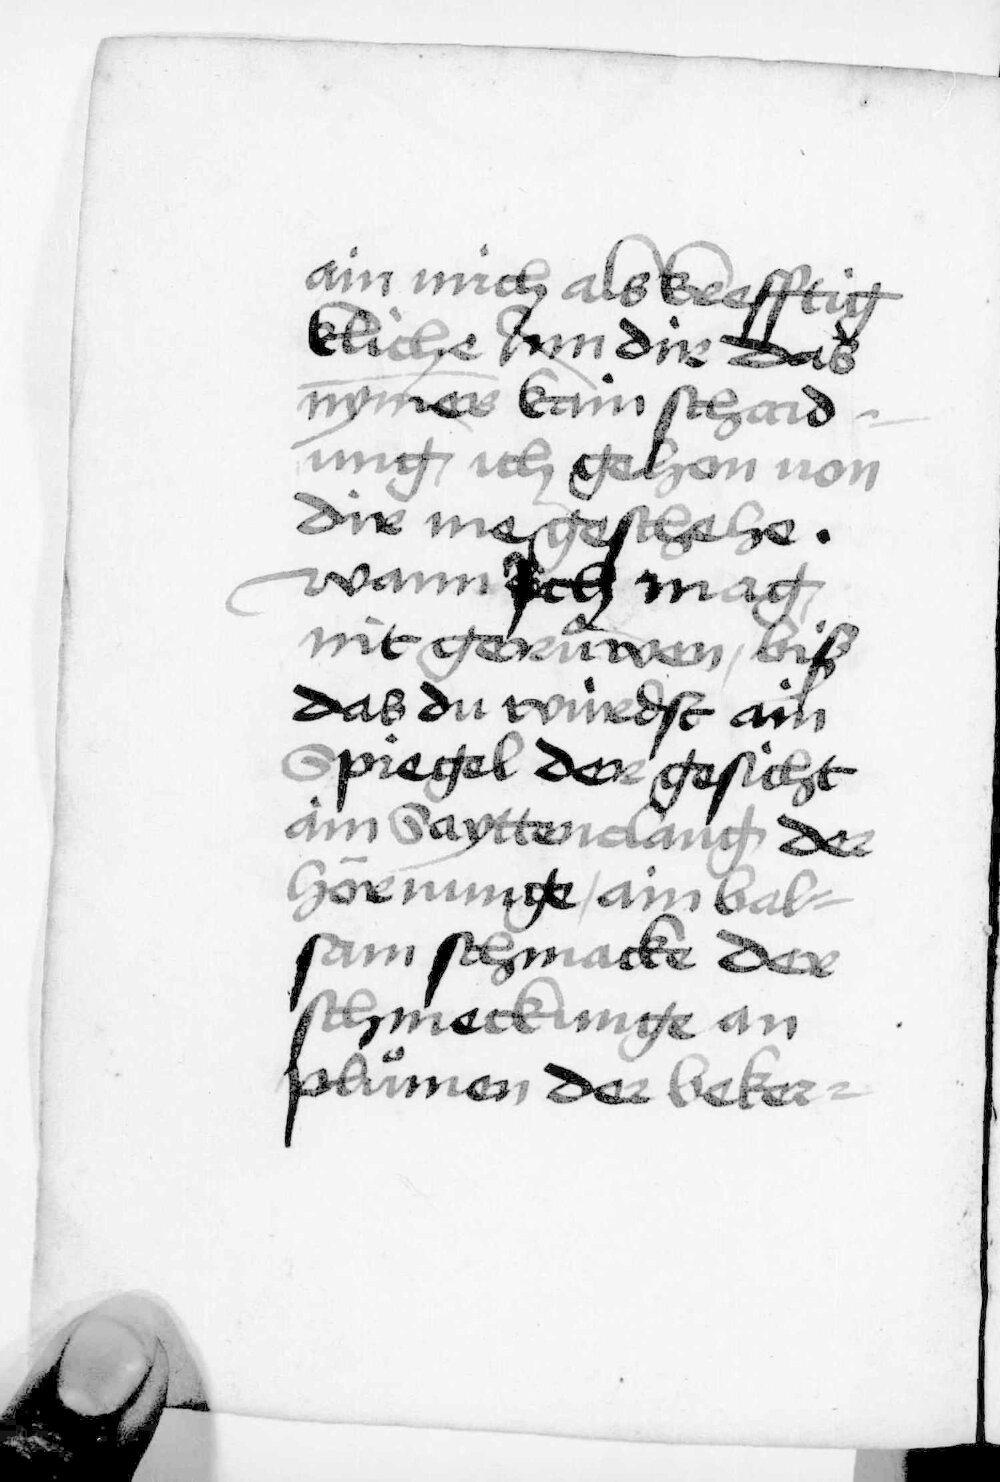 ain mich als krefftig
kliche Inn dir das
nymer kain schaid-
ung ich gehen von
dir me geschehe.
wann Ich mag
nit gerůwen / biß
das du würdst ain
Spiegel der gesicht
ain Sayttenclang der
hörnunge / ain bal=
sam schmacke der
schmeckunge an
plůmen der beker=